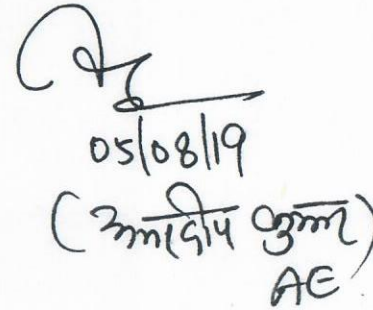 05/08/19
(अमरदीप कुमार)
AE